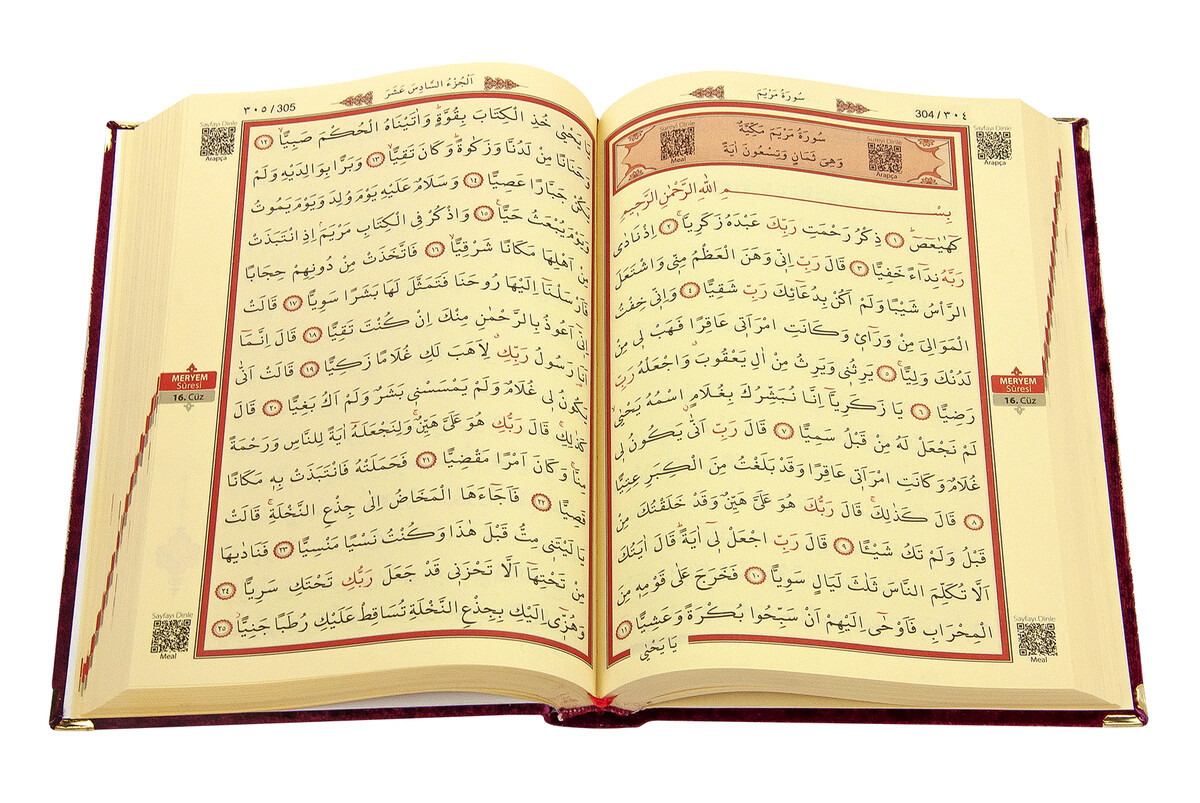 سُورَةُ مَرْيَمَ
304 / ٣٠٤
Sayfayı Dinle
Arapça
Sûreyi Dinle
Meal
سُورَةُ مَرْيَمَ مَكِّيَّةٌ
وَهِيَ ثَمَانٍ وَتِسْعُونَ اٰيَةً
Sûreyi Dinle
Arapça
بِسْــــــمِ اللّٰهِ الرَّحْمٰنِ الرَّح۪يمِ
كٓهٰيٰعٓصٓ ١ ذِكْرُ رَحْمَتِ رَبِّكَ عَبْدَهُ زَكَرِيَّاۚ ٢ اِذْ نَادٰى
رَبَّهُ نِدَٓاءً خَفِيًّا ٣ قَالَ رَبِّ اِنّ۪ي وَهَنَ الْعَظْمُ مِنّ۪ي وَاشْتَعَلَ
الرَّأْسُ شَيْبًا وَلَمْ اَكُنْ بِدُعَٓائِكَ رَبِّ شَقِيًّا ٤ وَاِنّ۪ي خِفْتُ
الْمَوَالِيَ مِنْ وَرَٓاء۪ي وَكَانَتِ امْرَاَت۪ي عَاقِرًا فَهَبْ ل۪ي مِنْ
لَدُنْكَ وَلِيًّاۙ ٥ يَرِثُن۪ي وَيَرِثُ مِنْ اٰلِ يَعْقُوبَۗ وَاجْعَلْهُ رَبِّ
رَضِيًّا ٦ يَا زَكَرِيَّٓا اِنَّا نُبَشِّرُكَ بِغُلَامٍۨ اسْمُهُ يَحْيٰىۙ
لَمْ نَجْعَلْ لَهُ مِنْ قَبْلُ سَمِيًّا ٧ قَالَ رَبِّ اَنّٰى يَكُونُ ل۪ي
غُلَامٌ وَكَانَتِ امْرَاَت۪ي عَاقِرًا وَقَدْ بَلَغْتُ مِنَ الْكِبَرِ عِتِيًّا
٨ قَالَ كَذٰلِكَۚ قَالَ رَبُّكَ هُوَ عَلَيَّ هَيِّنٌ وَقَدْ خَلَقْتُكَ مِنْ
قَبْلُ وَلَمْ تَكُ شَيْـًٔا ٩ قَالَ رَبِّ اجْعَلْ ل۪ٓي اٰيَةًۜ قَالَ اٰيَتُكَ
اَلَّا تُكَلِّمَ النَّاسَ ثَلٰثَ لَيَالٍ سَوِيًّا ١٠ فَخَرَجَ عَلٰى قَوْمِه۪ مِنَ
الْمِحْرَابِ فَاَوْحٰٓى اِلَيْهِمْ اَنْ سَبِّحُوا بُكْرَةً وَعَشِيًّا ١١
يَا يَحْيٰى
MERYEM
Sûresi
16. Cüz
Sayfayı Dinle
Meal
اَلْجُزْءُ السَّادِسَ عَشَرَ
٣٠٥ / 305
Sayfayı Dinle
Arapça
يَا يَحْيٰى خُذِ الْكِتَابَ بِقُوَّةٍۜ وَاٰتَيْنَاهُ الْحُكْمَ صَبِيًّاۙ ١٢
وَحَنَانًا مِنْ لَدُنَّا وَزَكٰوةًۜ وَكَانَ تَقِيًّاۙ ١٣ وَبَرًّا بِوَالِدَيْهِ وَلَمْ
يَكُنْ جَبَّارًا عَصِيًّا ١٤ وَسَلَامٌ عَلَيْهِ يَوْمَ وُلِدَ وَيَوْمَ يَمُوتُ
وَيَوْمَ يُبْعَثُ حَيًّا۟ ١٥ وَاذْكُرْ فِي الْكِتَابِ مَرْيَمَۢ اِذِ انْتَبَذَتْ
مِنْ اَهْلِهَا مَكَانًا شَرْقِيًّاۙ ١٦ فَاتَّخَذَتْ مِنْ دُونِهِمْ حِجَابًا
فَاَرْسَلْنَٓا اِلَيْهَا رُوحَنَا فَتَمَثَّلَ لَهَا بَشَرًا سَوِيًّا ١٧ قَالَتْ
اِنّ۪ٓي اَعُوذُ بِالرَّحْمٰنِ مِنْكَ اِنْ كُنْتَ تَقِيًّا ١٨ قَالَ اِنَّمَٓا
اَنَا رَسُولُ رَبِّكِۗ لِاَهَبَ لَكِ غُلَامًا زَكِيًّا ١٩ قَالَتْ اَنّٰى
يَكُونُ ل۪ي غُلَامٌ وَلَمْ يَمْسَسْن۪ي بَشَرٌ وَلَمْ اَكُ بَغِيًّا ٢٠ قَالَ
كَذٰلِكِۚ قَالَ رَبُّكِ هُوَ عَلَيَّ هَيِّنٌۚ وَلِنَجْعَلَهُٓ اٰيَةً لِلنَّاسِ وَرَحْمَةً
مِنَّاۚ وَكَانَ اَمْرًا مَقْضِيًّا ٢١ فَحَمَلَتْهُ فَانْتَبَذَتْ بِه۪ مَكَانًا
قَصِيًّا ٢٢ فَاَجَٓاءَهَا الْمَخَاضُ اِلٰى جِذْعِ النَّخْلَةِۚ قَالَتْ
يَا لَيْتَن۪ي مِتُّ قَبْلَ هٰذَا وَكُنْتُ نَسْيًا مَنْسِيًّا ٢٣ فَنَادٰيهَا
مِنْ تَحْتِهَٓا اَلَّا تَحْزَن۪ي قَدْ جَعَلَ رَبُّكِ تَحْتَكِ سَرِيًّا ٢٤
وَهُزّ۪ٓي اِلَيْكِ بِجِذْعِ النَّخْلَةِ تُسَاقِطْ عَلَيْكِ رُطَبًا جَنِيًّاۘ ٢٥
MERYEM
Sûresi
16. Cüz
Sayfayı Dinle
Meal